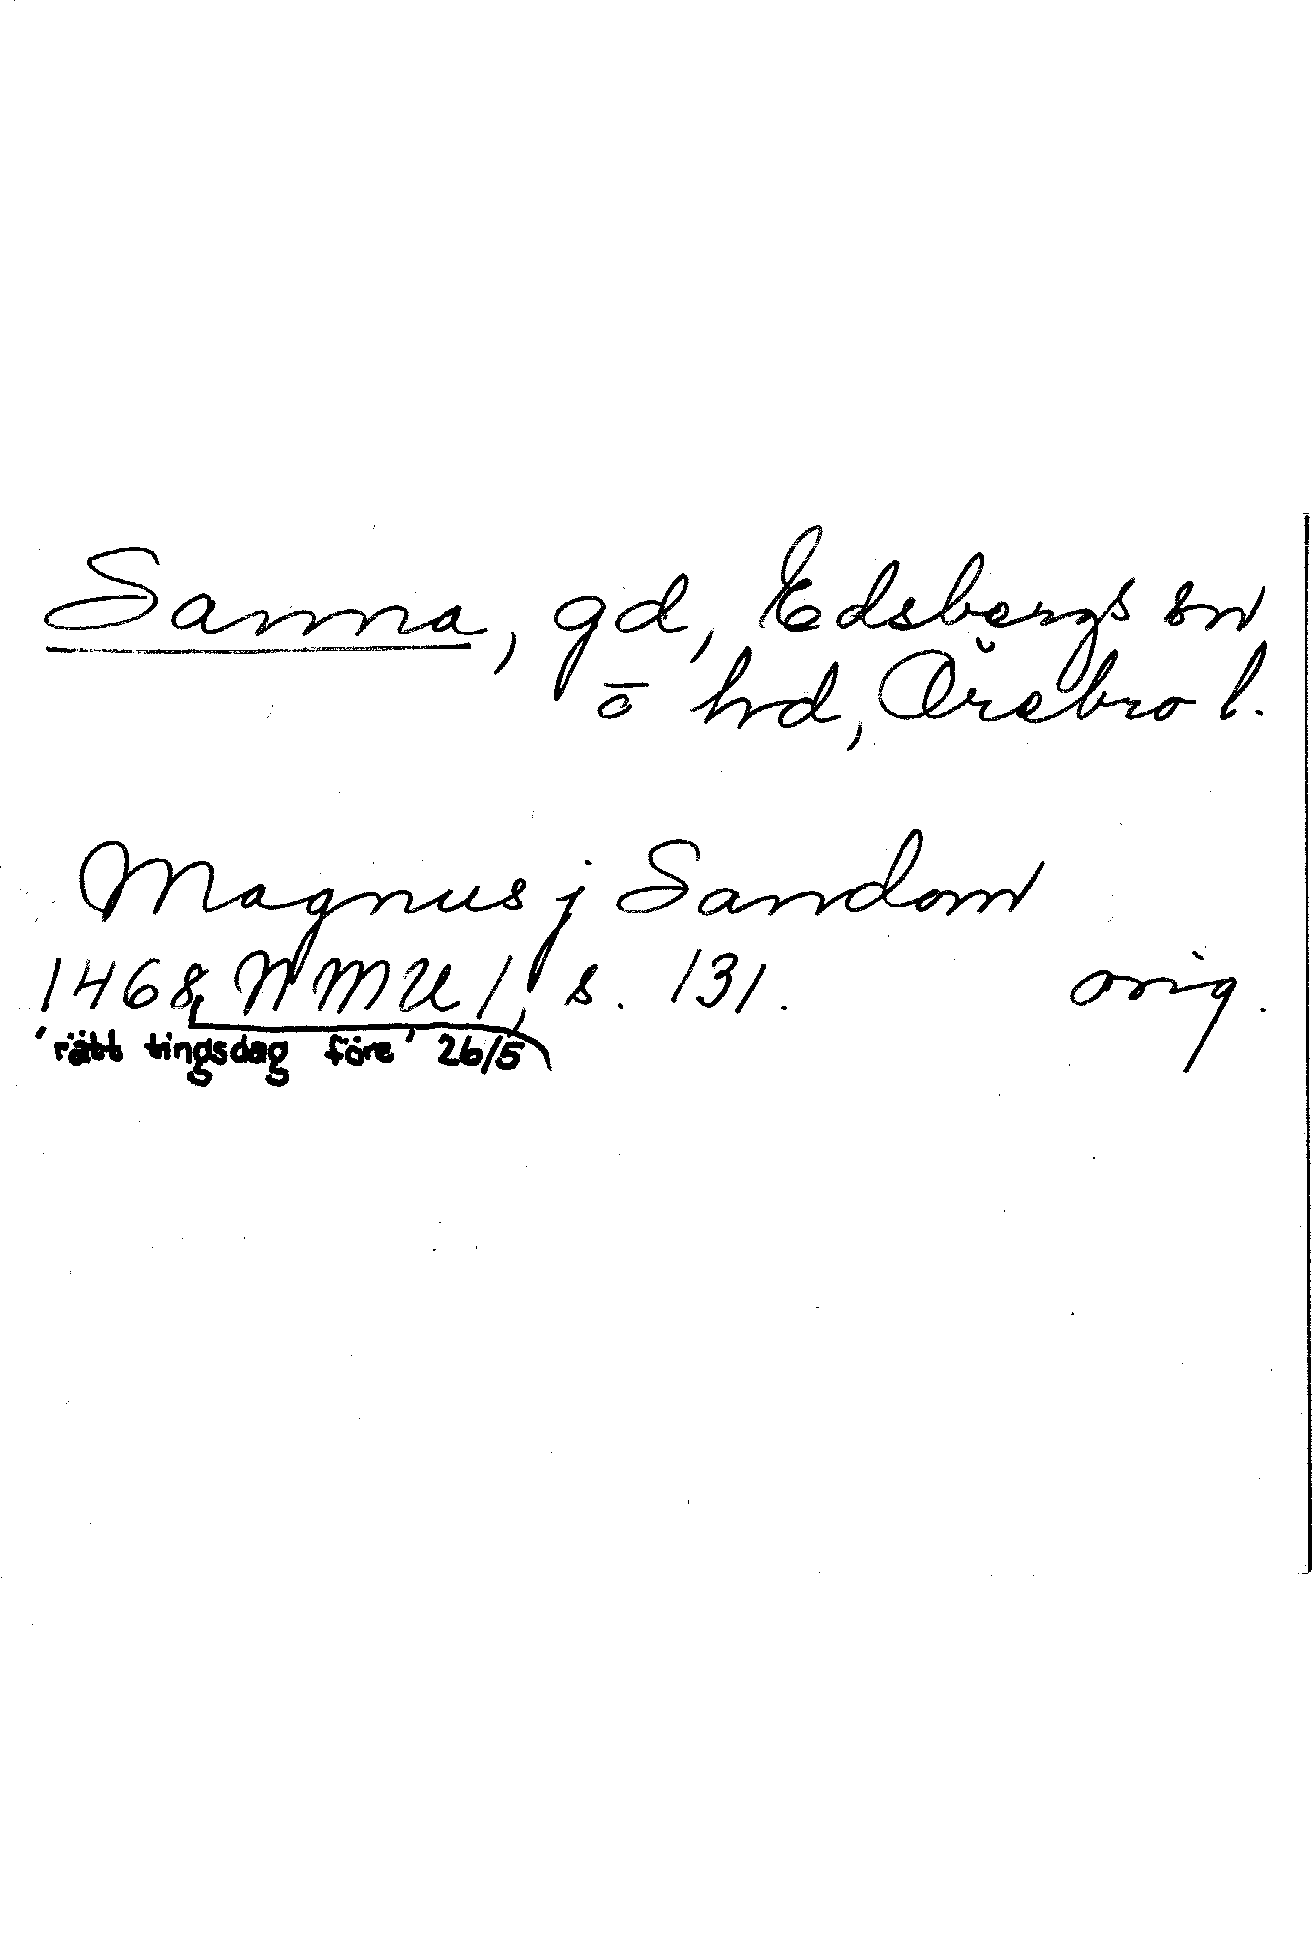 Sanna, gd, Edsbergs sn
o hd, Örebro l.
Magnus j Sandom
1468, NMU 1, s. 131. orig.
'rätt tingsdag före' 26/5